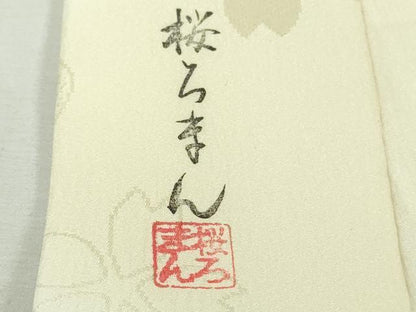 桜ろまん
桜ろ
まん